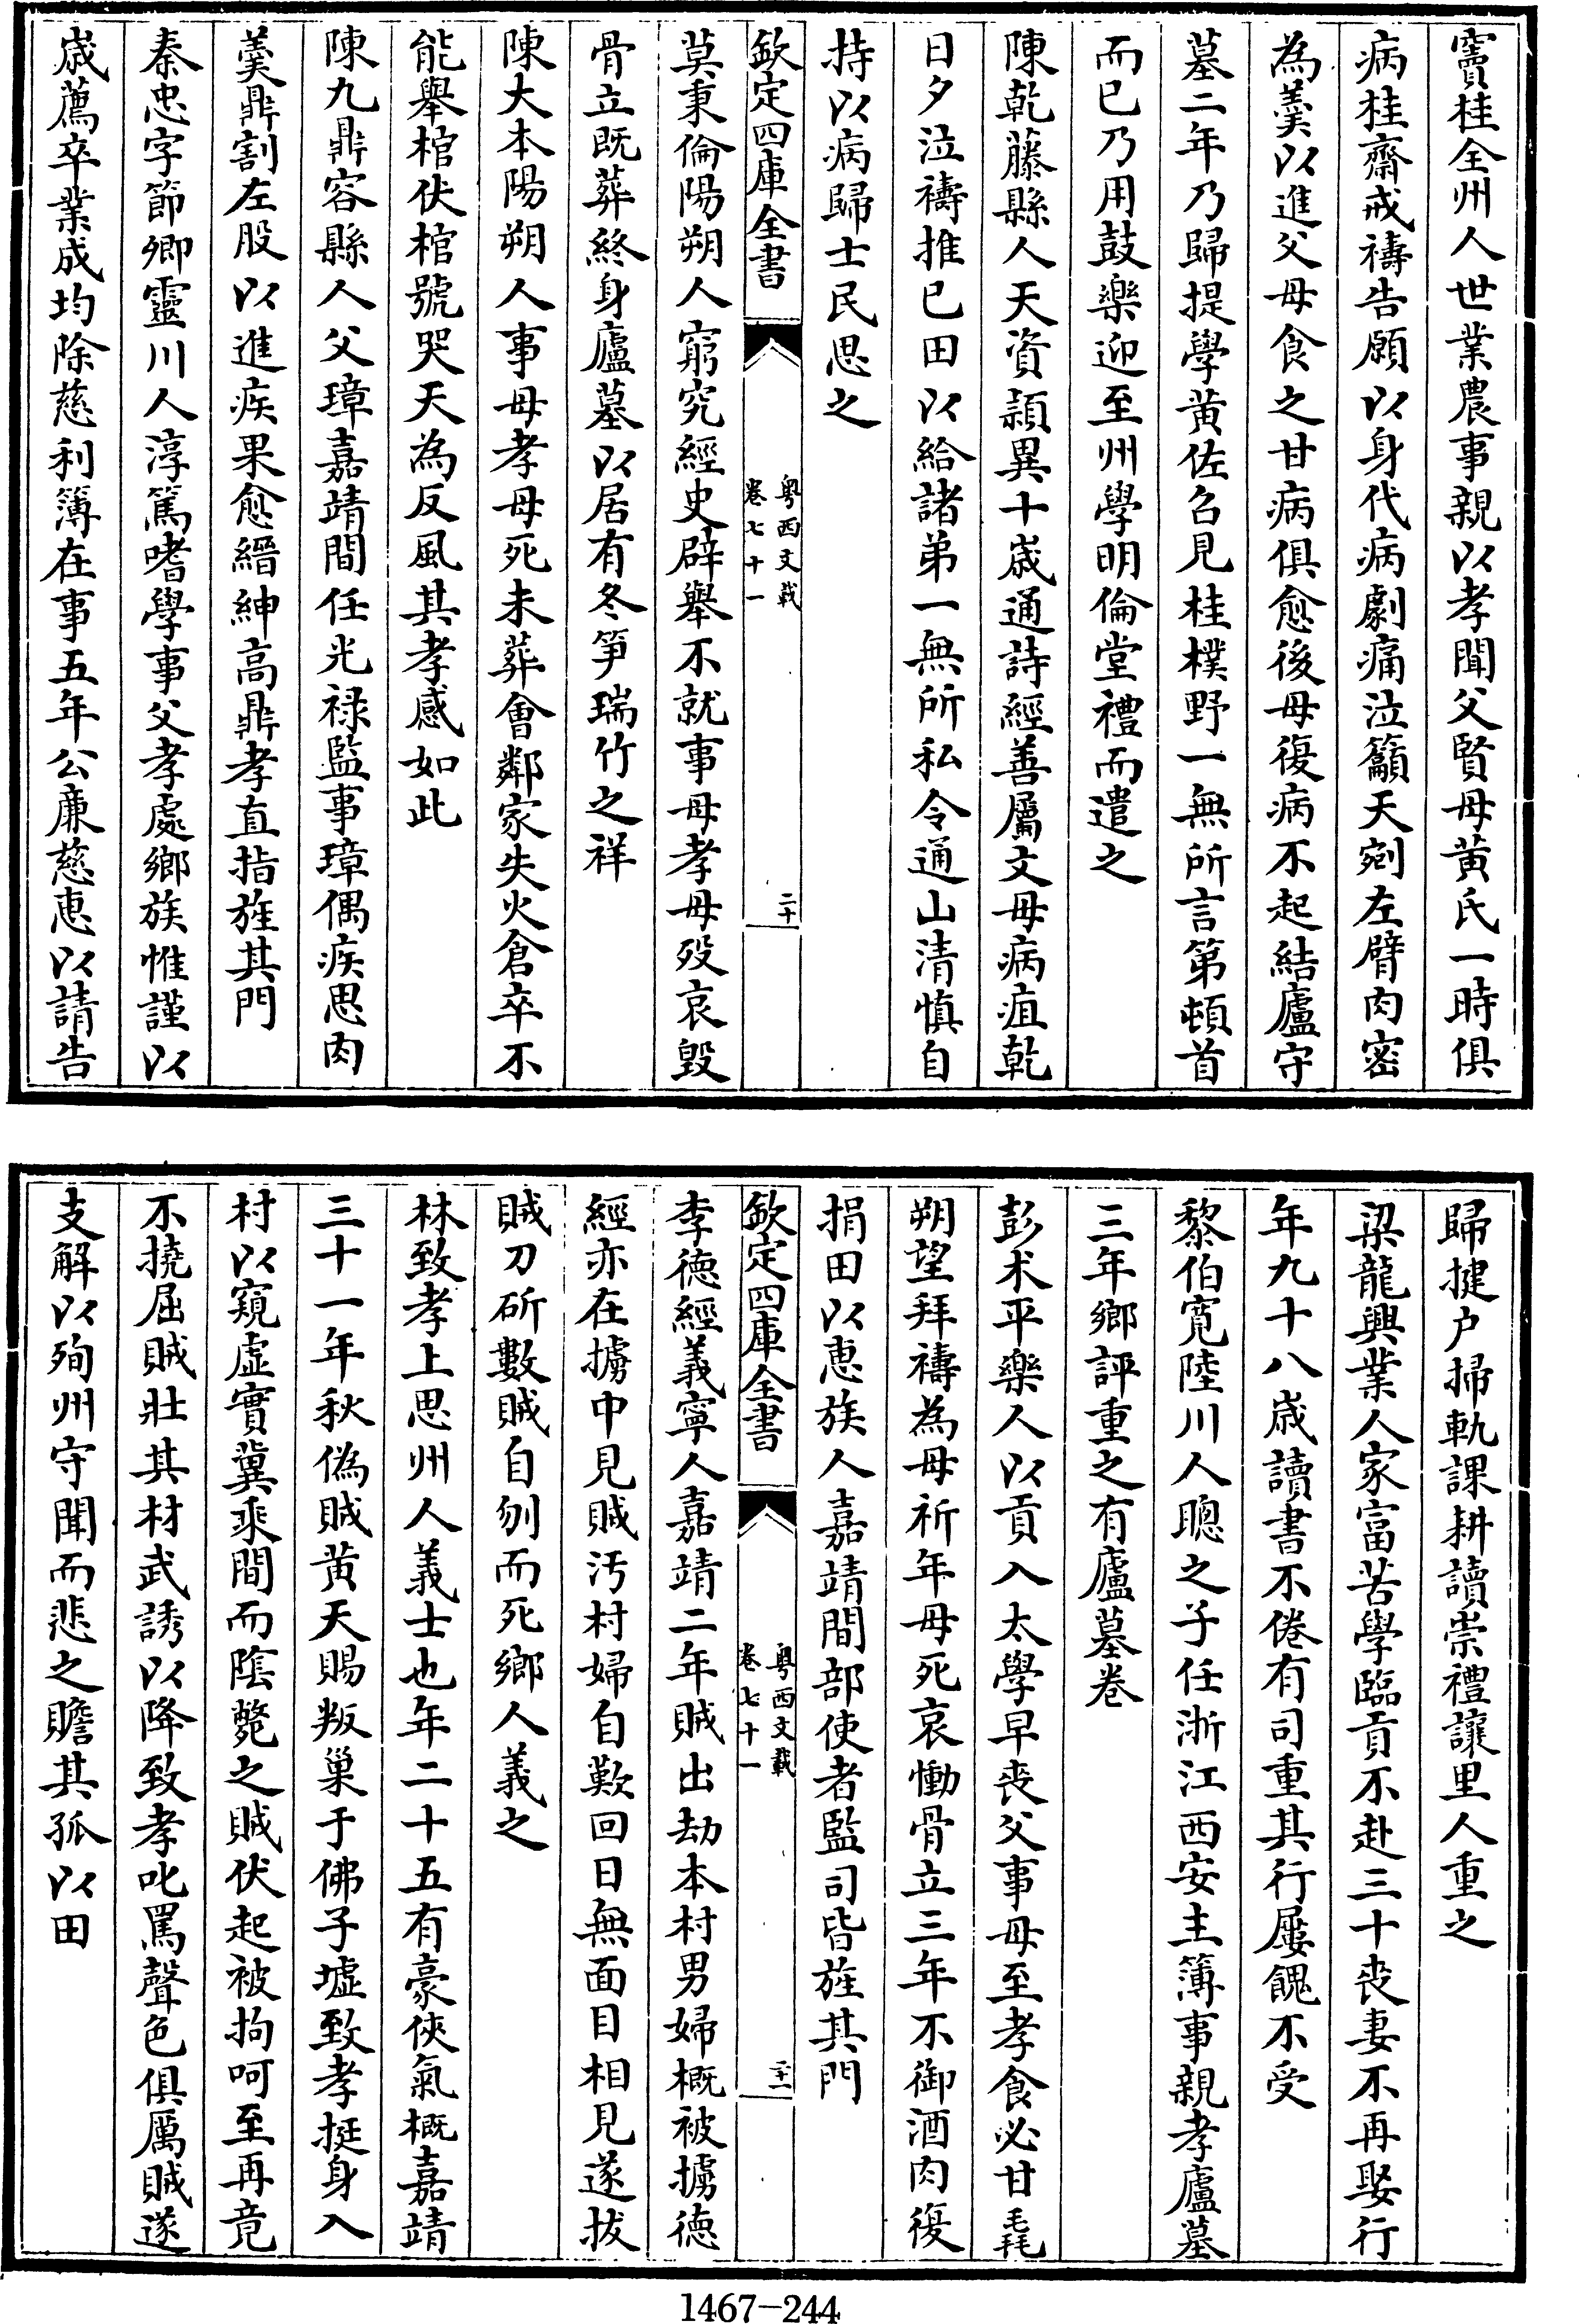 竇桂全州人世業農事親以孝聞父賢母黃氏一時俱
病桂齋戒禱告願以身代病劇痛泣籲天剜左臂肉密
為羹以進父母食之甘病俱愈後母復病不起結廬守
墓二年乃歸提學黃佐召見桂樸野一無所言第頓首
而已乃用鼓樂迎至州學明倫堂禮而遣之
陳乾藤縣人天資頴異十歲通詩經善屬文母病疽乾
日夕泣禱推己田以給諸弟一無所私令通山清慎自
持以病歸士民思之
欽定四庫全書
粵西文載
卷七十一
二十
莫秉倫陽朔人窮究經史辟舉不就事母孝母歿哀毀
骨立既葬終身廬墓以居有冬笋瑞竹之祥
陳大本陽朔人事母孝母死未葬會鄰家失火倉卒不
能舉棺伏棺號哭天為反風其孝感如此
陳九鼎容縣人父璋嘉靖間任光祿監事璋偶疾思肉
羹鼎割左股以進疾果愈縉紳高鼎孝直指旌其門
秦忠字節卿靈川人淳篤嗜學事父孝處鄉族惟謹以
歲薦卒業成均除慈利簿在事五年公廉慈惠以請告
歸揵户掃軌課耕讀崇禮讓里人重之
梁龍興業人家富苦學臨貢不赴三十喪妻不再娶行
年九十八歲讀書不倦有司重其行屢餽不受
黎伯寬陸川人聰之子任浙江西安主簿事親孝廬墓
三年鄉評重之有廬墓卷
彭术平樂人以貢入太學早喪父事母至孝食必甘毳
朔望拜禱為母祈年母死哀慟骨立三年不御酒肉復
捐田以惠族人嘉靖間部使者監司皆旌其門
欽定四庫全書
粵西文載
卷七十一
二十一
李德經義寧人嘉靖二年賊出劫本村男婦概被擄德
經亦在擄中見賊汚村婦自歎回日無面目相見遂拔
賊刀斫數賊自刎而死鄉人義之
林致孝上思州人義士也年二十五有豪俠氣概嘉靖
三十一年秋偽賊黃天賜叛巢于佛子墟致孝挺身入
村以窺虛實冀乘間而陰斃之賊伏起被拘呵至再竟
不撓屈賊壯其材武誘以降致孝叱罵聲色俱厲賊遂
支解以殉州守聞而悲之贍其孤以田
1467-244